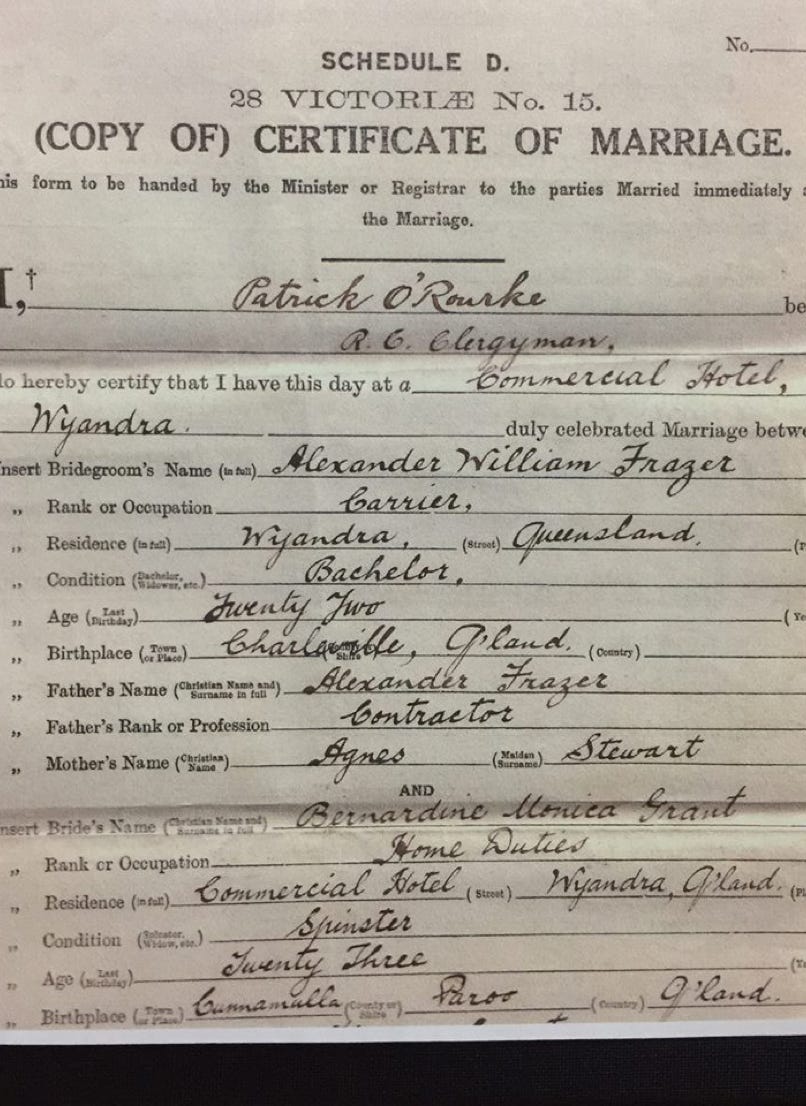 No.
SCHEDULE D.
28 VICTORIÆ No. 15.
(COPY OF) CERTIFICATE OF MARRIAGE.
his form to be handed by the Minister or Registrar to the parties Married immediately a
the Marriage.
I,† Patrick O'Rourke be
R. C. Clergyman.
do hereby certify that I have this day at a Commercial Hotel,
Wyandra. duly celebrated Marriage betwe
nsert Bridegroom's Name (in full) Alexander William Frazer
„ Rank or Occupation Carrier,
„ Residence (in full) Wyandra, (Street) Queensland.
„ Condition (Bachelor, Widower, etc.) Bachelor,
„ Age (Last Birthday) Twenty Two (Ye
„ Birthplace (Town or Place) Charleville, Q'land. (Country)
„ Father's Name (Christian Name and Surname in full) Alexander Frazer
„ Father's Rank or Profession Contractor
„ Mother's Name (Christian Name) Agnes (Maiden Surname) Stewart
AND
nsert Bride's Name (Christian Name and Surname in full) Bernardine Monica Grant
„ Rank or Occupation Home Duties
„ Residence (in full) Commercial Hotel (Street) Wyandra, Q'land. (Pl
„ Condition (Spinster, Widow, etc.) Spinster
„ Age (Last Birthday) Twenty Three (Ye
„ Birthplace (Town or Place) Cunnamulla (County or Shire) Paroo (Country) Q'land.